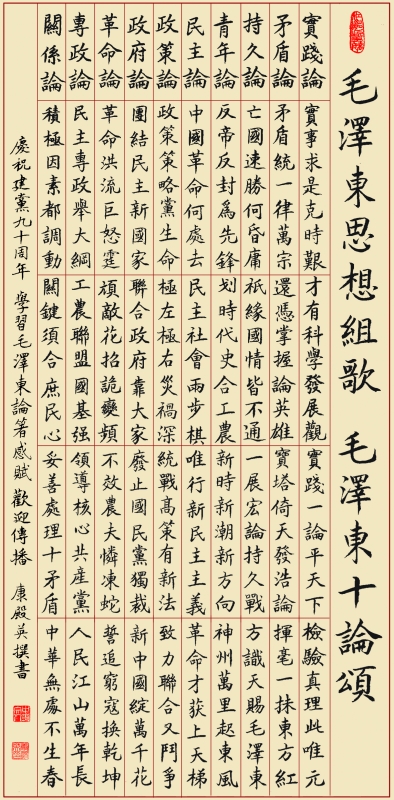 毛澤東思想組歌 毛澤東十論頌
實踐論 實事求是克時艱 才有科學發展觀 實踐一論平天下 檢驗真理此唯元
矛盾論 矛盾統一律萬宗 還憑掌握論英雄 寶塔倚天發浩論 揮毫一抹東方紅
持久論 亡國速勝何昏庸 祇緣國情皆不通 一展宏論持久戰 方識天賜毛澤東
青年論 反帝反封為先鋒 划時代史合工農 新時新潮新方向 神州萬里起東風
民主論 中國革命何處去 民主社會兩步棋 唯行新民主主義 革命才获上天梯
政策論 政策策略黨生命 極左極右災禍深 統戰高策有新法 致力聯合又鬥爭
政府論 團結民主新國家 聯合政府靠大家 廢止國民黨獨裁 新中國綻萬千花
革命論 革命洪流巨怒霆 頑敵花招詭變頻 不效農夫憐凍蛇 誓追窮寇換乾坤
專政論 民主專政舉大綱 工農聯盟國基强 領導核心共產黨 人民江山萬年長
關係論 積極因素都調動 關鍵須合庶民心 妥善處理十矛盾 中華無處不生春
慶祝建黨九十周年 學習毛澤東論著感賦 歡迎傳播 康殿英撰書